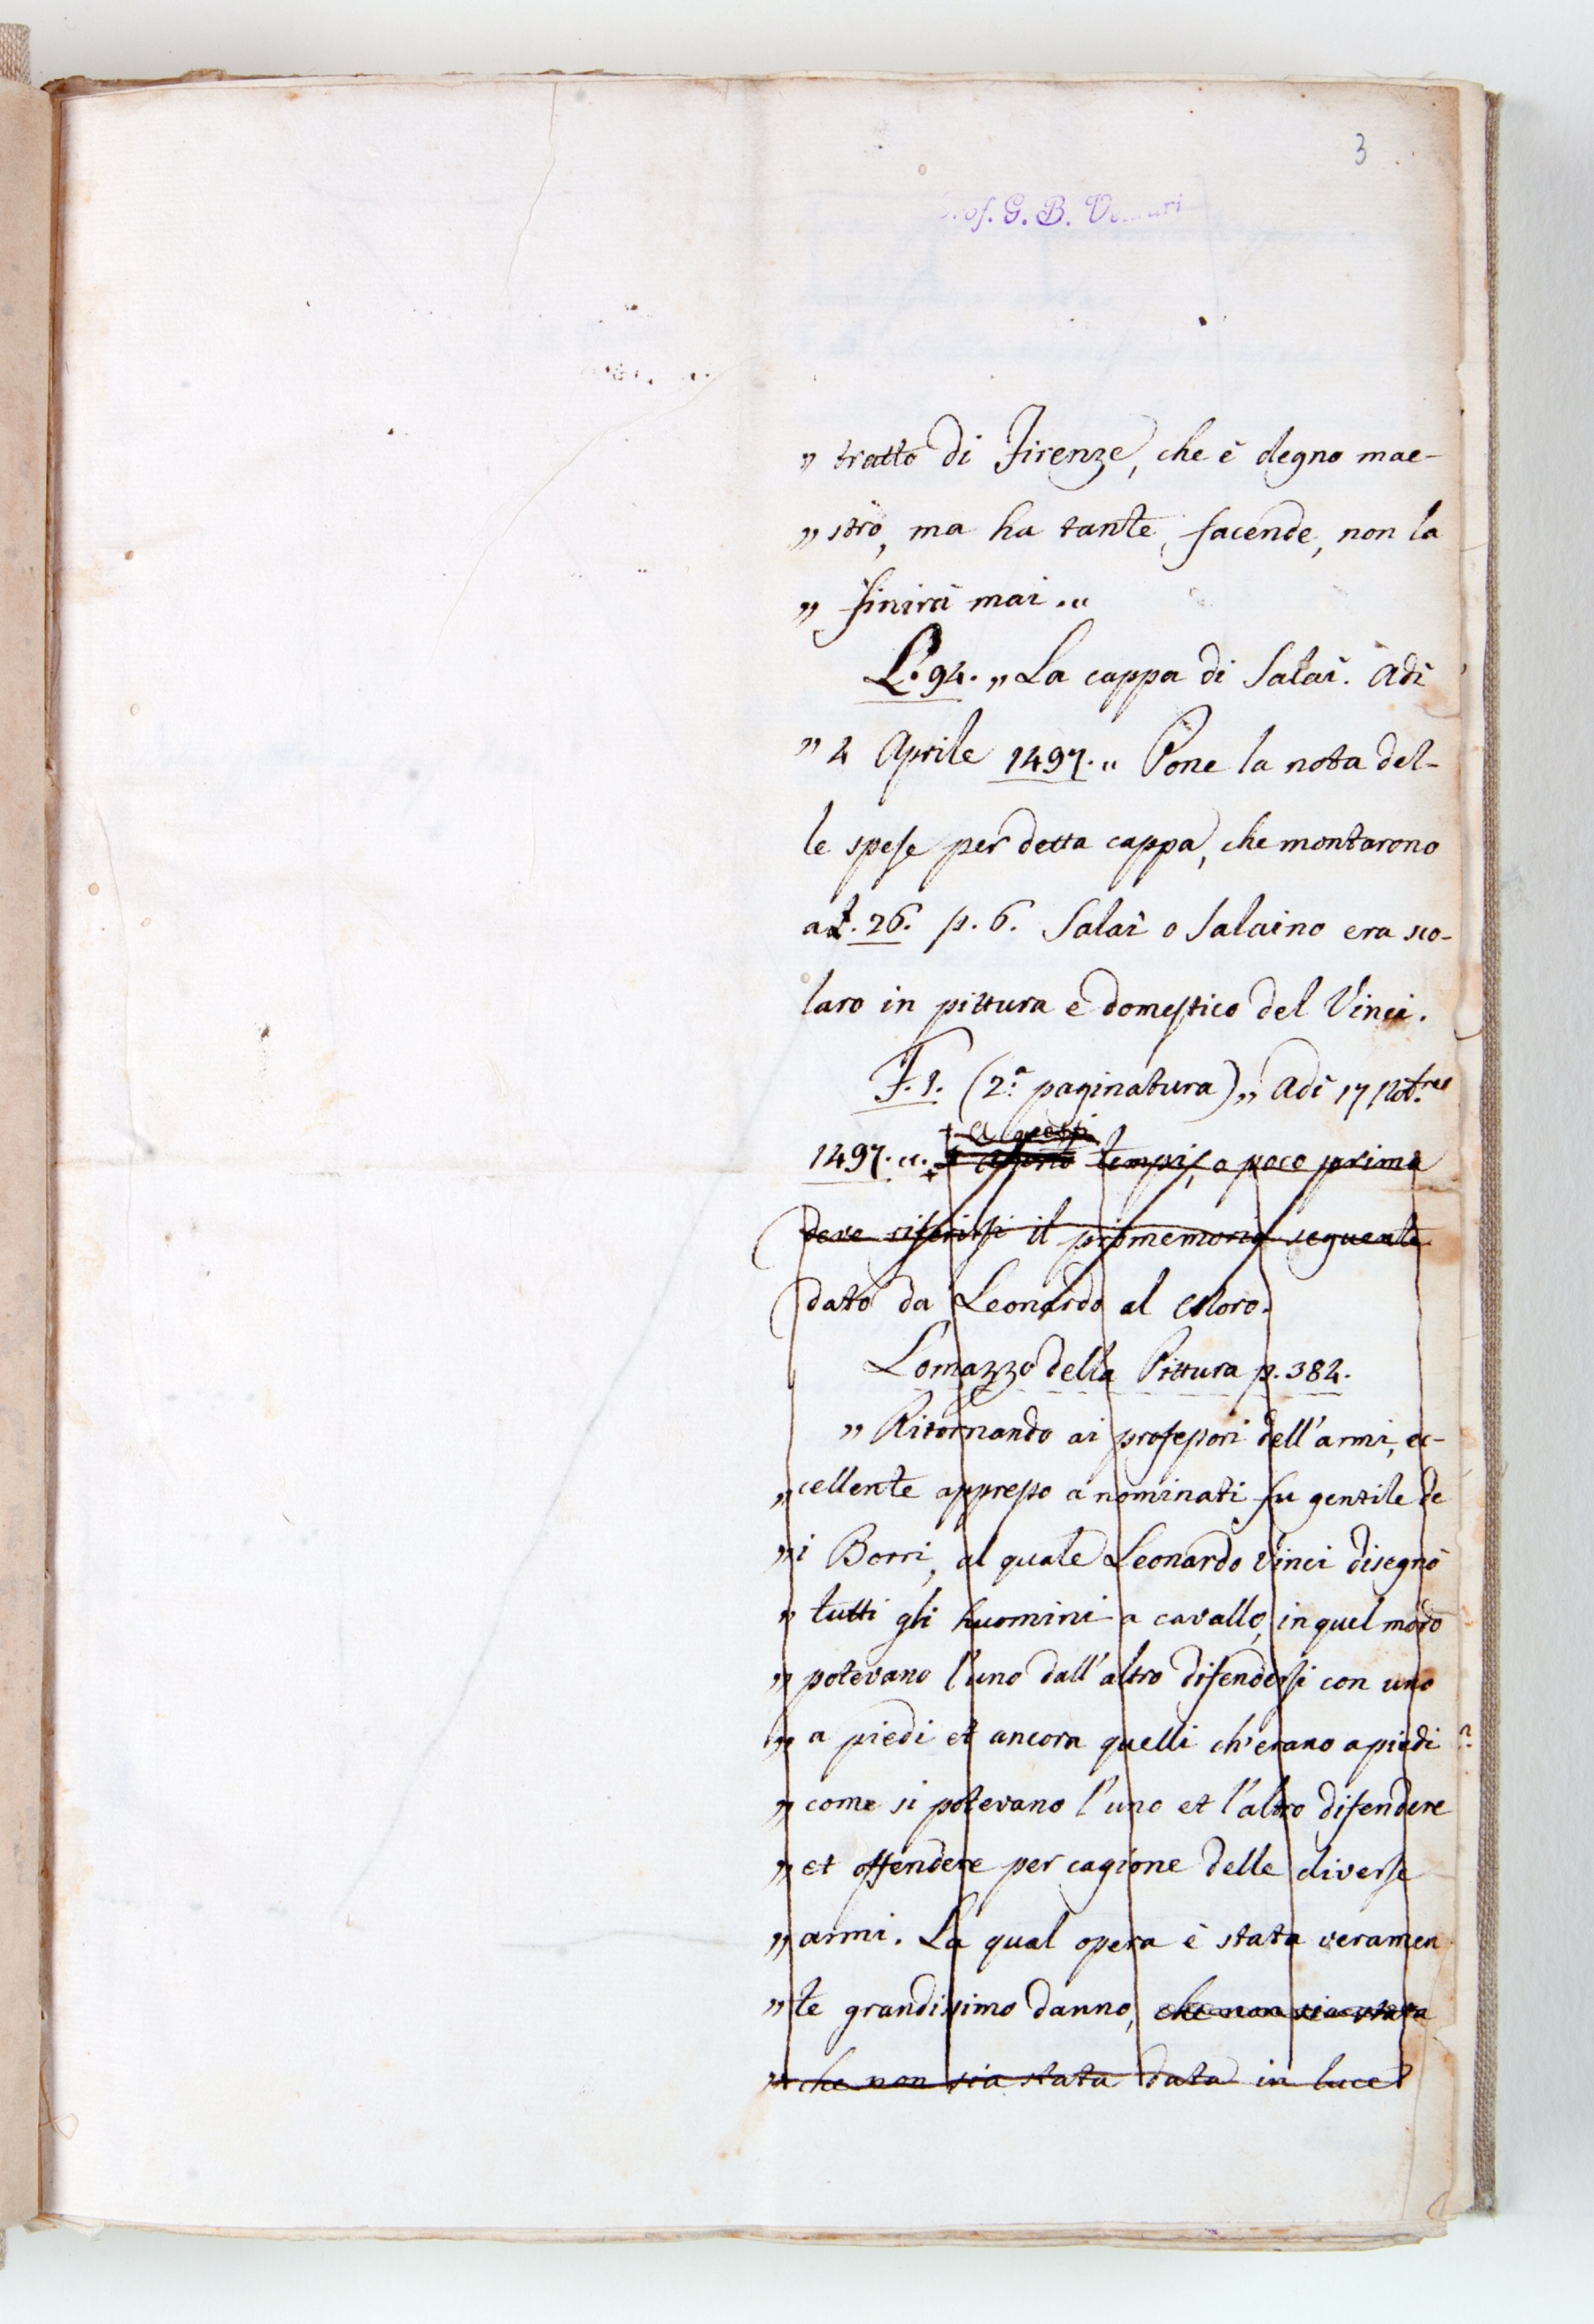 3
Prof. G. B. Venturi
„ tratto di Firenze, che è degno mae-
„ stro, ma ha tante facende, non la
„ finirà mai.“
L.94. „ La cappa di Salaì. Adì
„ 4 Aprile 1497.“ Pone la nota del-
le spese per detta cappa, che montarono
a L. 26. p. 6. Salaì o Salaino era sco-
laro in pittura e domestico del Vinci.
F.1. (2.ª paginatura) „ Adì 17
+ A questi
1497.“ + tempi, o poco prima
deve riferirsi il promemoria seguente
dato da Leonardo al Moro.
Lomazzo della Pittura p. 384.
„ Ritornando ai professori dell'armi, ec-
„ cellente appresso a nominati fu gentile de
„ i Borri, al quale Leonardo Vinci disegnò
„ tutti gli huomini a cavallo, in quel modo
„ potevano l'uno dall'altro difendersi con uno
„ a piedi et ancora quelli ch'erano a piedi ?
„ come si potevano l'uno et l'altro difendere
„ et offendere per cagione delle diverse
„ armi. La qual opera è stata veramen
„ te grandissimo danno, che non sia stata
„ che non sia stata data in luce